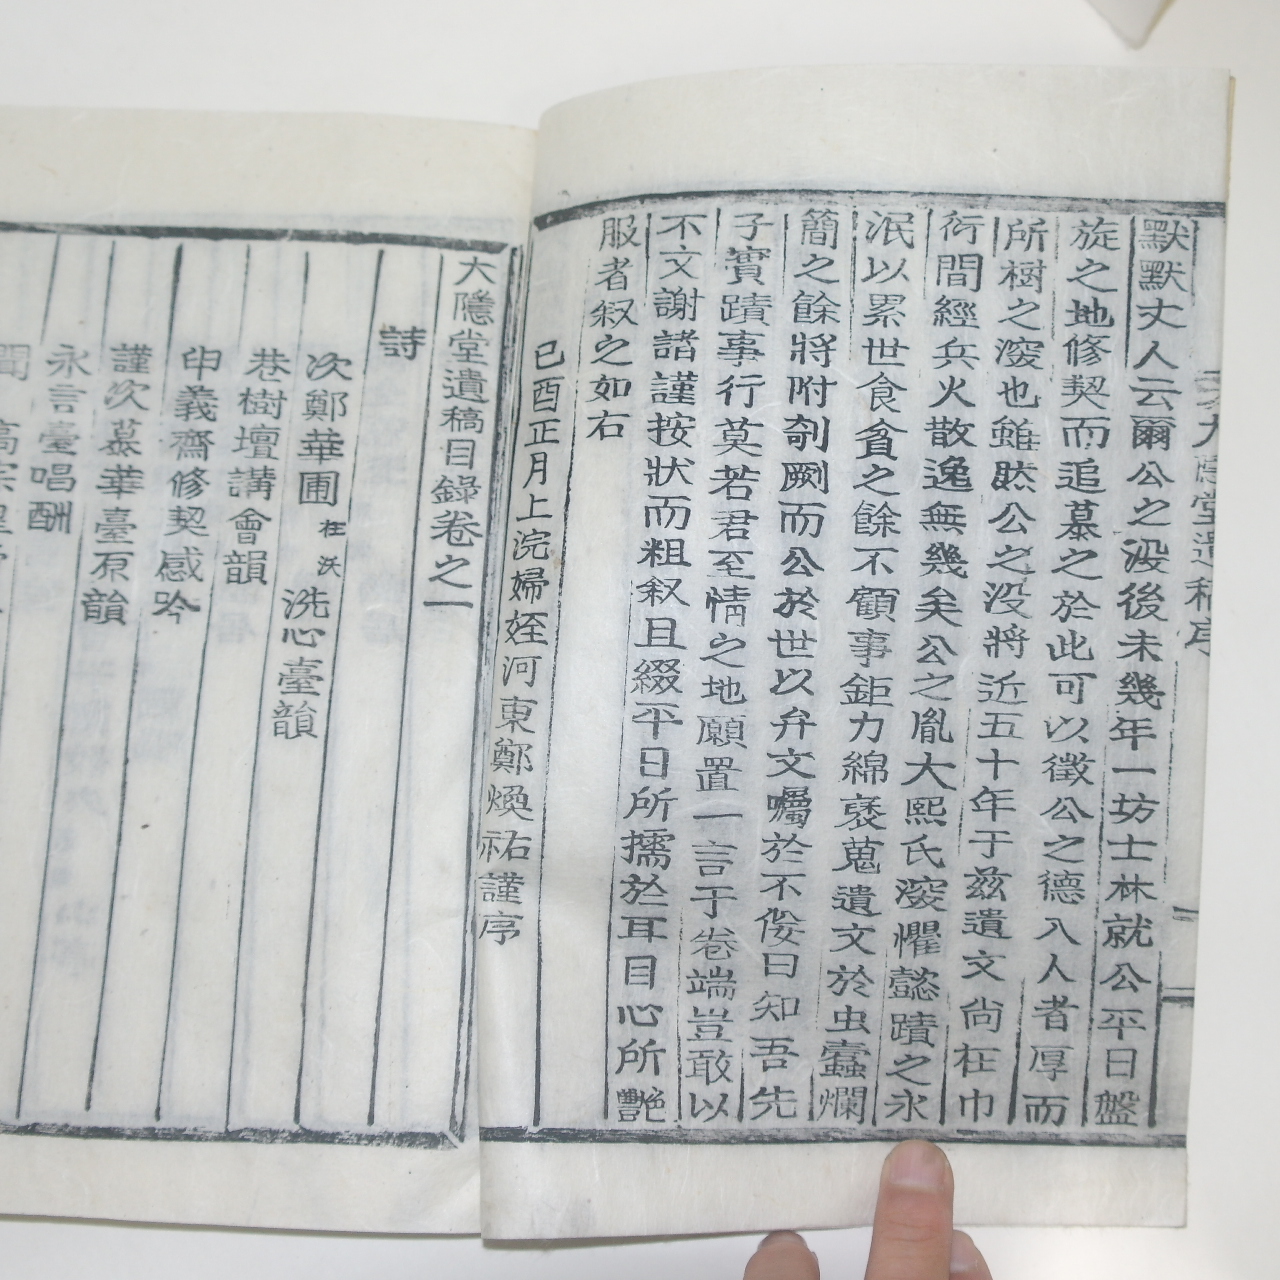 大隱堂遺稿序
默默丈人云爾公之沒後未幾年一坊士林就公平日盤
旋之地修契而追慕之於此可以徵公之德入人者厚而
所樹之深也雖然公之沒將近五十年于玆遺文尙在巾
衍間經兵火散逸無幾矣公之胤大熙氏深懼懿蹟之永
泯以累世食貧之餘不顧事鉅力綿裒蒐遺文於虫蠹爛
簡之餘將附剞劂而公於世以弁文囑於不佞曰知吾先
子實蹟事行莫若君至情之地願置一言于卷端豈敢以
不文謝諸謹按狀而粗叙且綴平日所擩於耳目心所艷
服者叙之如右
己酉正月上浣婦姪河東鄭煥祐謹序
大隱堂遺稿目錄卷之一
詩
次鄭華圃在沃洗心臺韻
巷樹壇講會韻
申義齋修契感吟
謹次慕華臺原韻
永言臺唱酬
聞